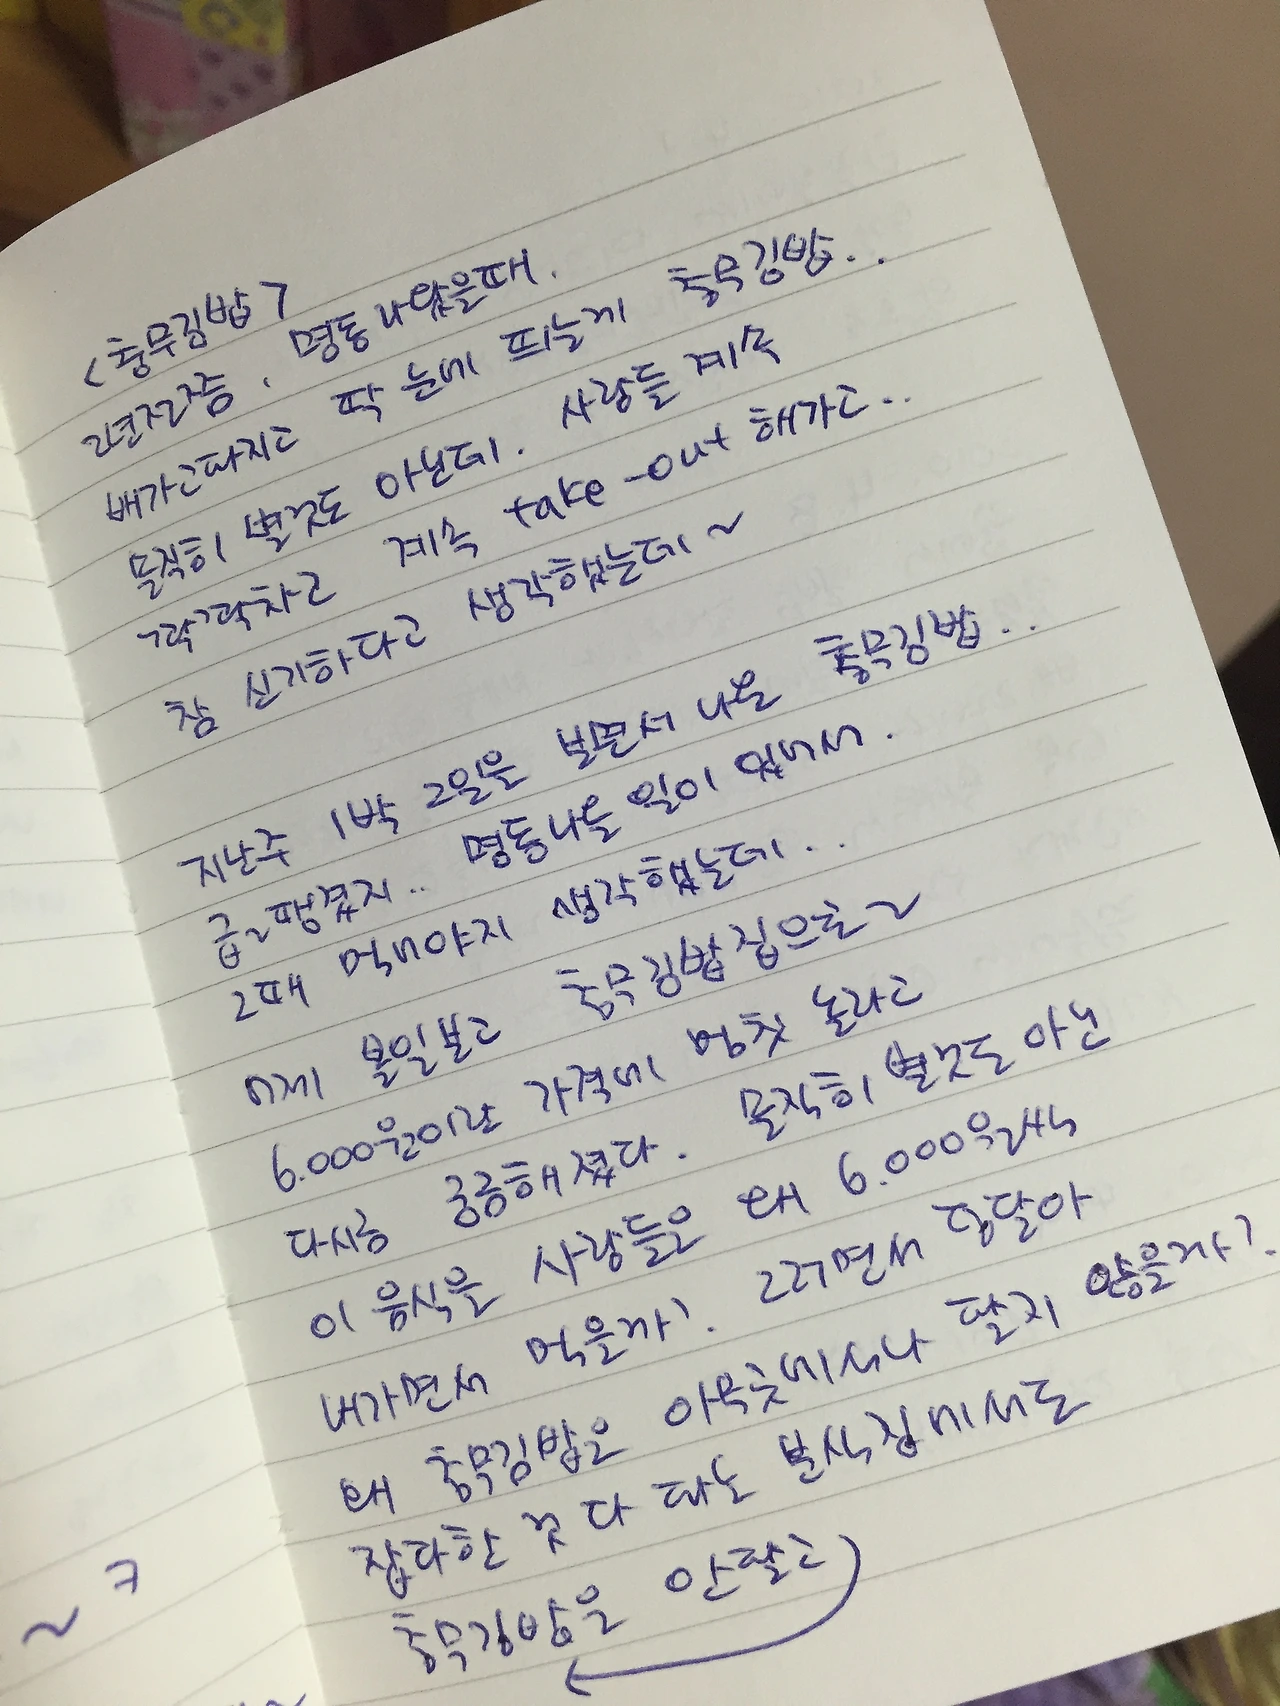 <충무김밥>
2년전쯤, 명동나왔을때.
배가고파지고 딱 눈에 띄는게 충무김밥..
솔직히 별것도 아닌데. 사람들 계속
꽉꽉차고 계속 take-out 해가고..
참 신기하다고 생각했는데~
지난주 1박 2일을 보면서 나온 충무김밥..
급 땡겼지.. 명동나올 일이 있어서.
그때 먹어야지 생각했는데..
어제 볼일보고 충무김밥집으로~
6.000원이란 가격에 멈칫 놀라고
다시금 궁금해졌다. 솔직히 별것도 아닌
이 음식을 사람들은 왜 6.000원씩
내가면서 먹을까?. 그러면서 덩달아
왜 충무김밥은 아무곳에서나 팔지 않을까?.
잡다한 것 다 파는 분식집에서도
충무김밥은 안팔고
~ ㅋ